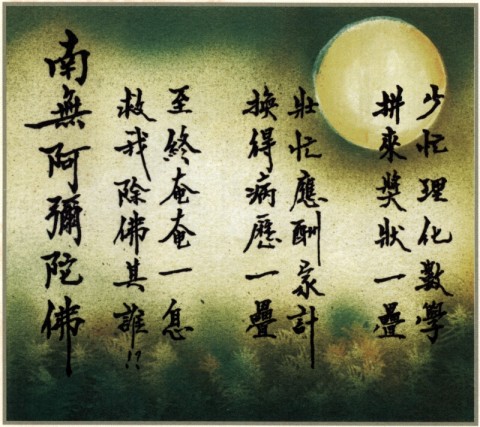 少忙理化數學
拼來獎狀一疊
壯忙應酬家計
換得病歷一疊
至終奄奄一息
救我除佛其誰!?
南無阿彌陀佛